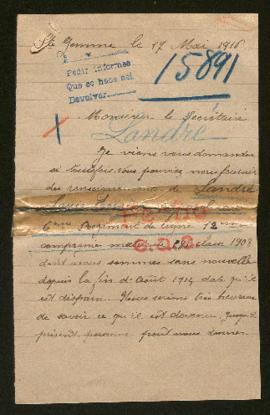 Ste Gemme le 17 Mai 1916
15891
Pedir informes
Que se hace asi
Devolver
Monsieur le Secrétaire
Landré
Je viens vous demander
si toutefois vous pouviez nous fournir
des renseignements de Landré
Louis
6ème Régiment de Ligne 12ème
compagnie classe 1908
dont nous sommes sans nouvelle
depuis la fin d'Août 1914 date qu'il
est disparu. Nous serions très heureux
de savoir ce qu'il est devenu jusqu'à
présent personne peut nous donner